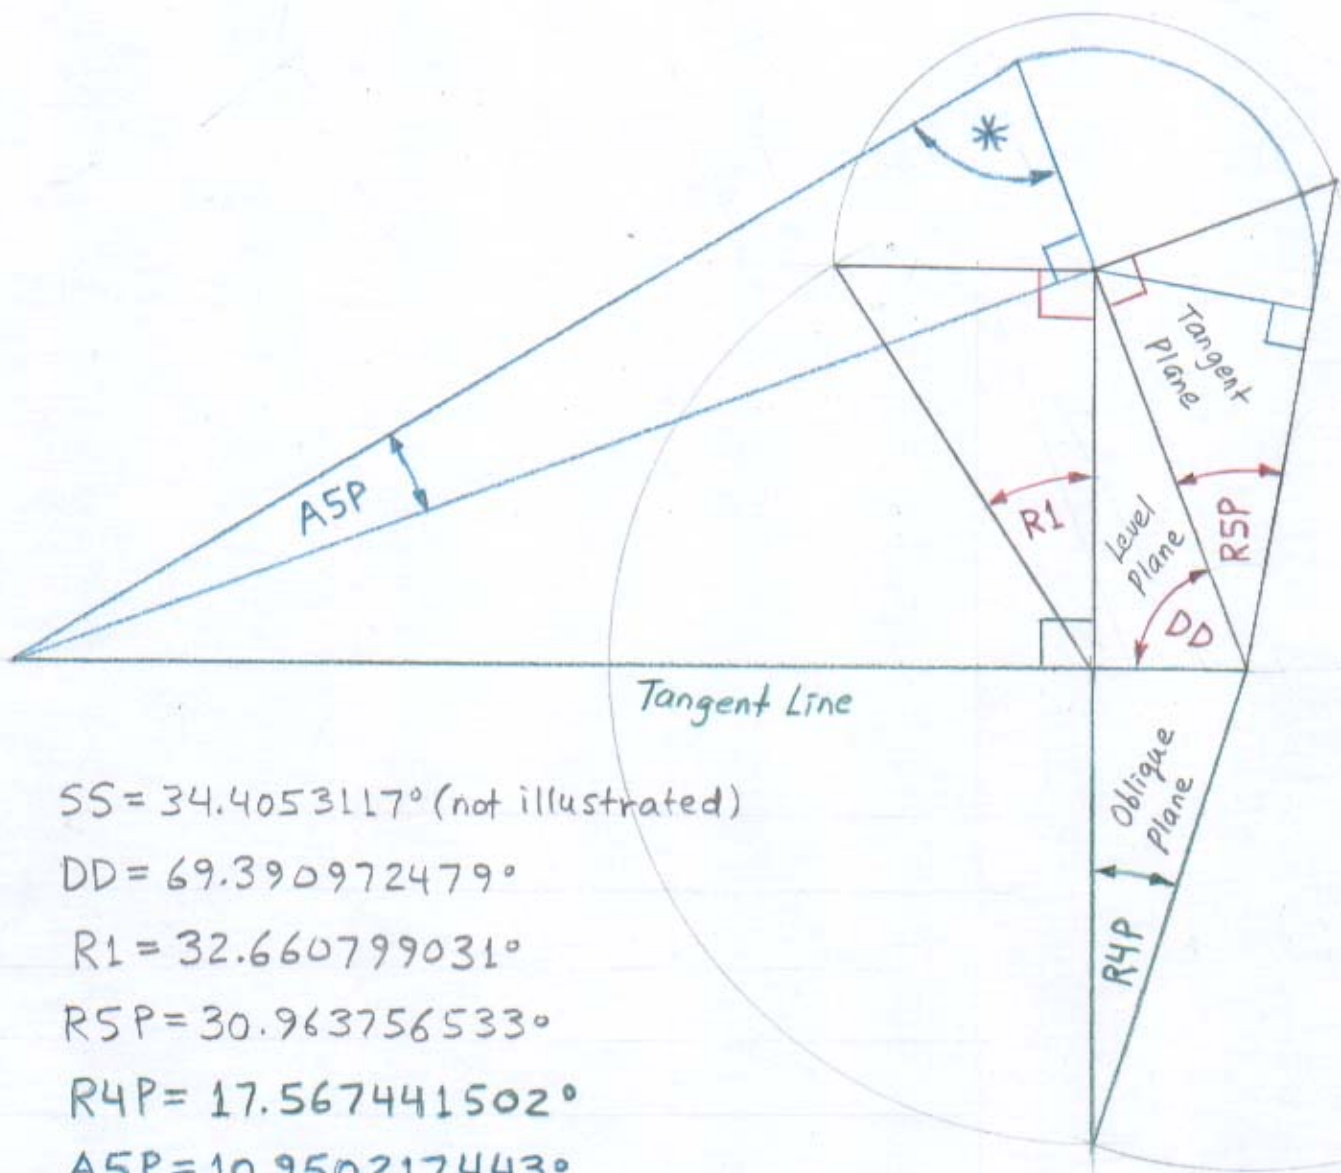 *
A5P
R1
Level
Plane
Tangent
Plane
R5P
DD
Tangent Line
Oblique
Plane
R4P
SS = 34.4053117° (not illustrated)
DD = 69.390972479°
R1 = 32.660799031°
R5P = 30.963756533°
R4P = 17.567441502°
A5P = 10.950217443°